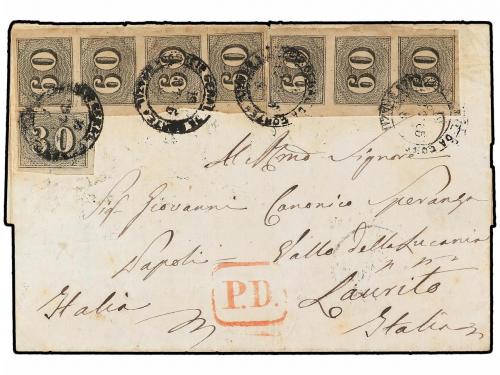 60 60 60 60 60 60 60
30
All Rmo Signore
Sig. Giovanni Canonico Speranza
Napoli - Vallo della Lucania
Italia P.D. Laurito
Italia